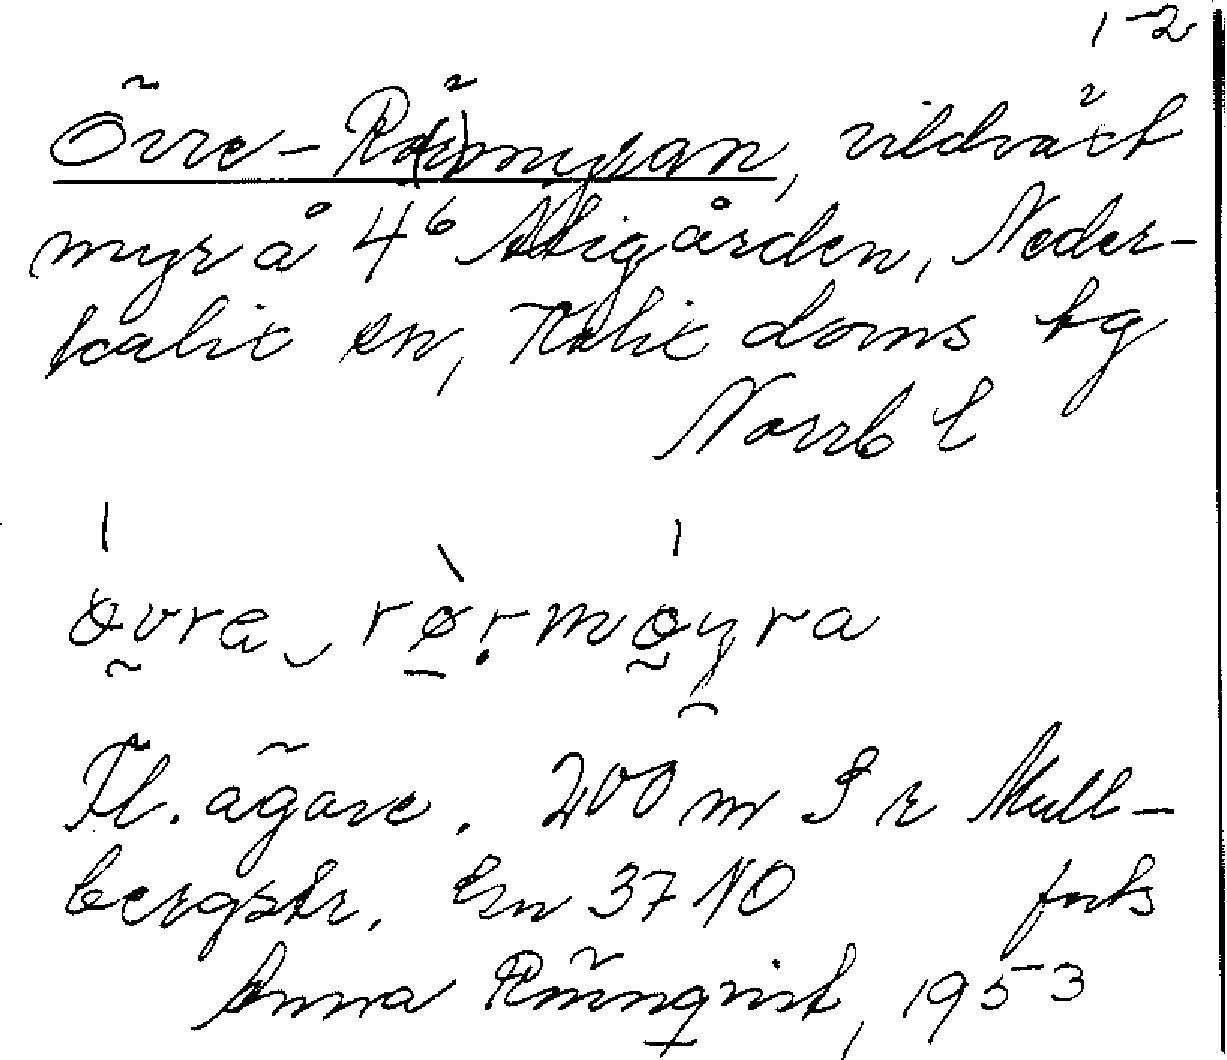 1-2
Övre-Rö(r)myran, vildväxt
myr å 4⁶ Stigården, Neder-
kalix sn, Kalix doms tg
Norrb l
øvra ‿ rø̀rmøyra
Fl. ägare. 200 m S k Mull-
bergstr. En 37 NO forts
Anna Rönnqvist, 1953